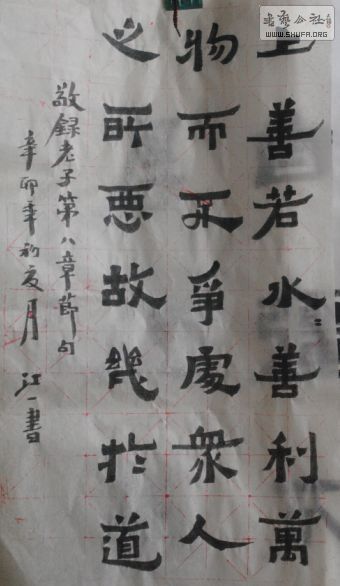 上善若水〻善利萬
物而不爭處衆人
之所惡故幾於道
敬録老子第八章節句
辛卯年初夏月 江一書
書藝公社
WWW.SHUFA.ORG